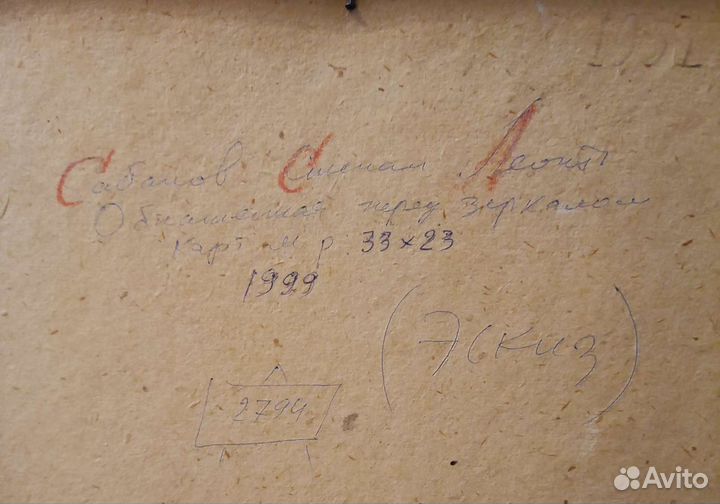 Сабанов Степан Леонт
Обнаженная перед зеркалом
карт м р. 33×23
1999
(Эскиз)
2794
Avito